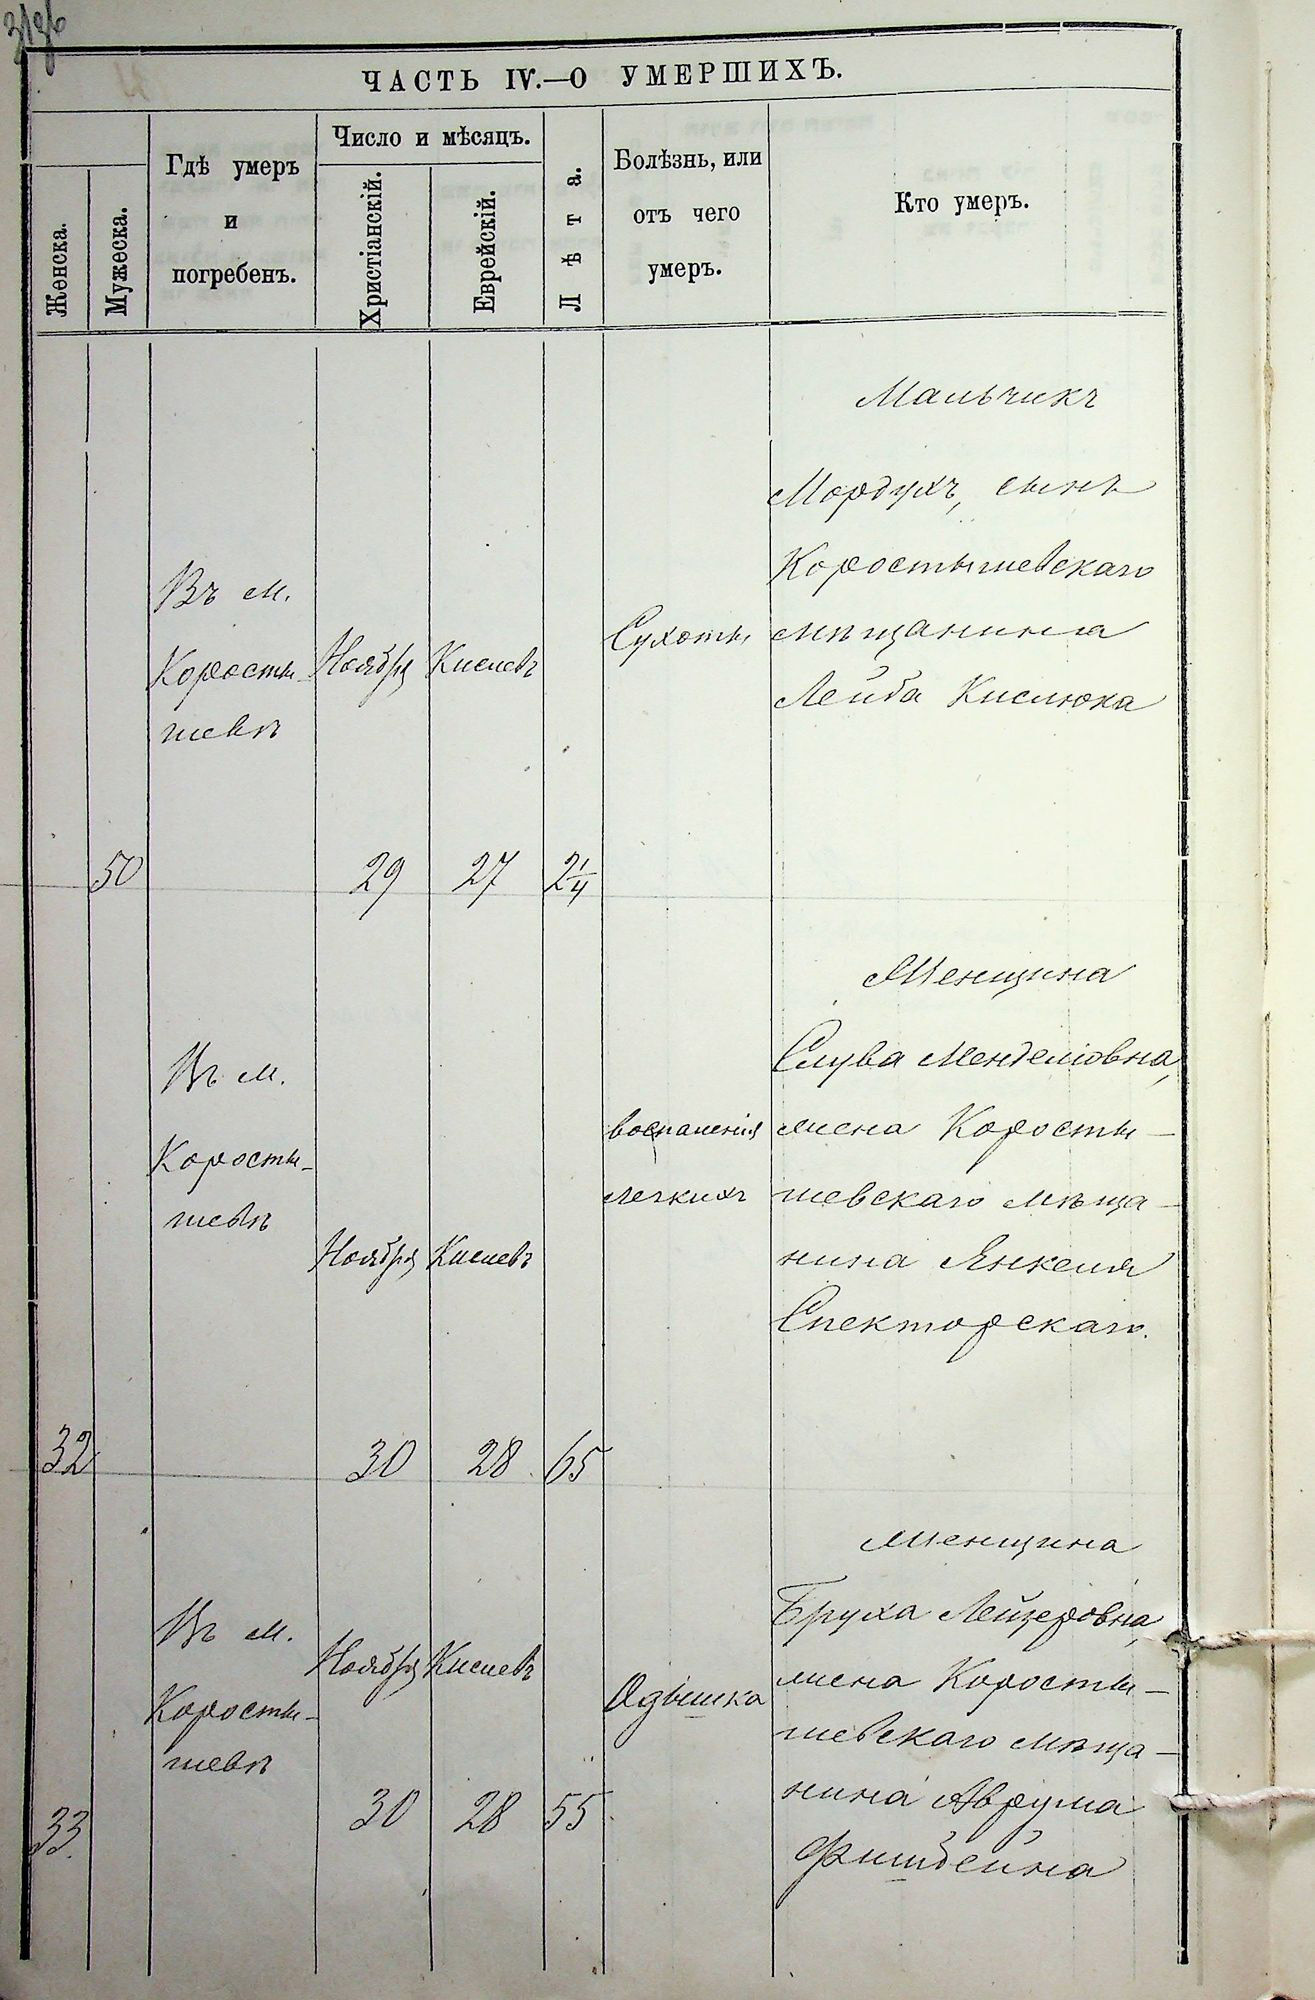 ЧАСТЬ IV.—О УМЕРШИХЪ.
Женска.
Мужеска.
Гдѣ умеръ
и
погребенъ.
Число и мѣсяцъ.
Христіанскій.
Еврейскій.
Лѣта.
Болѣзнь, или
отъ чего
умеръ.
Кто умеръ.
50
Въ м.
Коросты-
шевѣ
Ноября
29
Кислевъ
27
2 1/4
Сухоты
Мальчикъ
Мордухъ, сынъ
Коростышевскаго
мѣщанина
Лейба Кислюка
32
Въ м.
Коросты-
шевѣ
Ноября
30
Кислевъ
28
65
воспаленія
легкихъ
Женщина
Слува Менделіовна,
жена Коросты-
шевскаго мѣща-
нина Янкеля
Спекторскаго.
33
Въ м.
Коросты-
шевѣ
Ноября
30
Кислевъ
28
55
Одышка
Женщина
Бруха Лейзеровна,
жена Коросты-
шевскаго мѣща-
нина Аврума